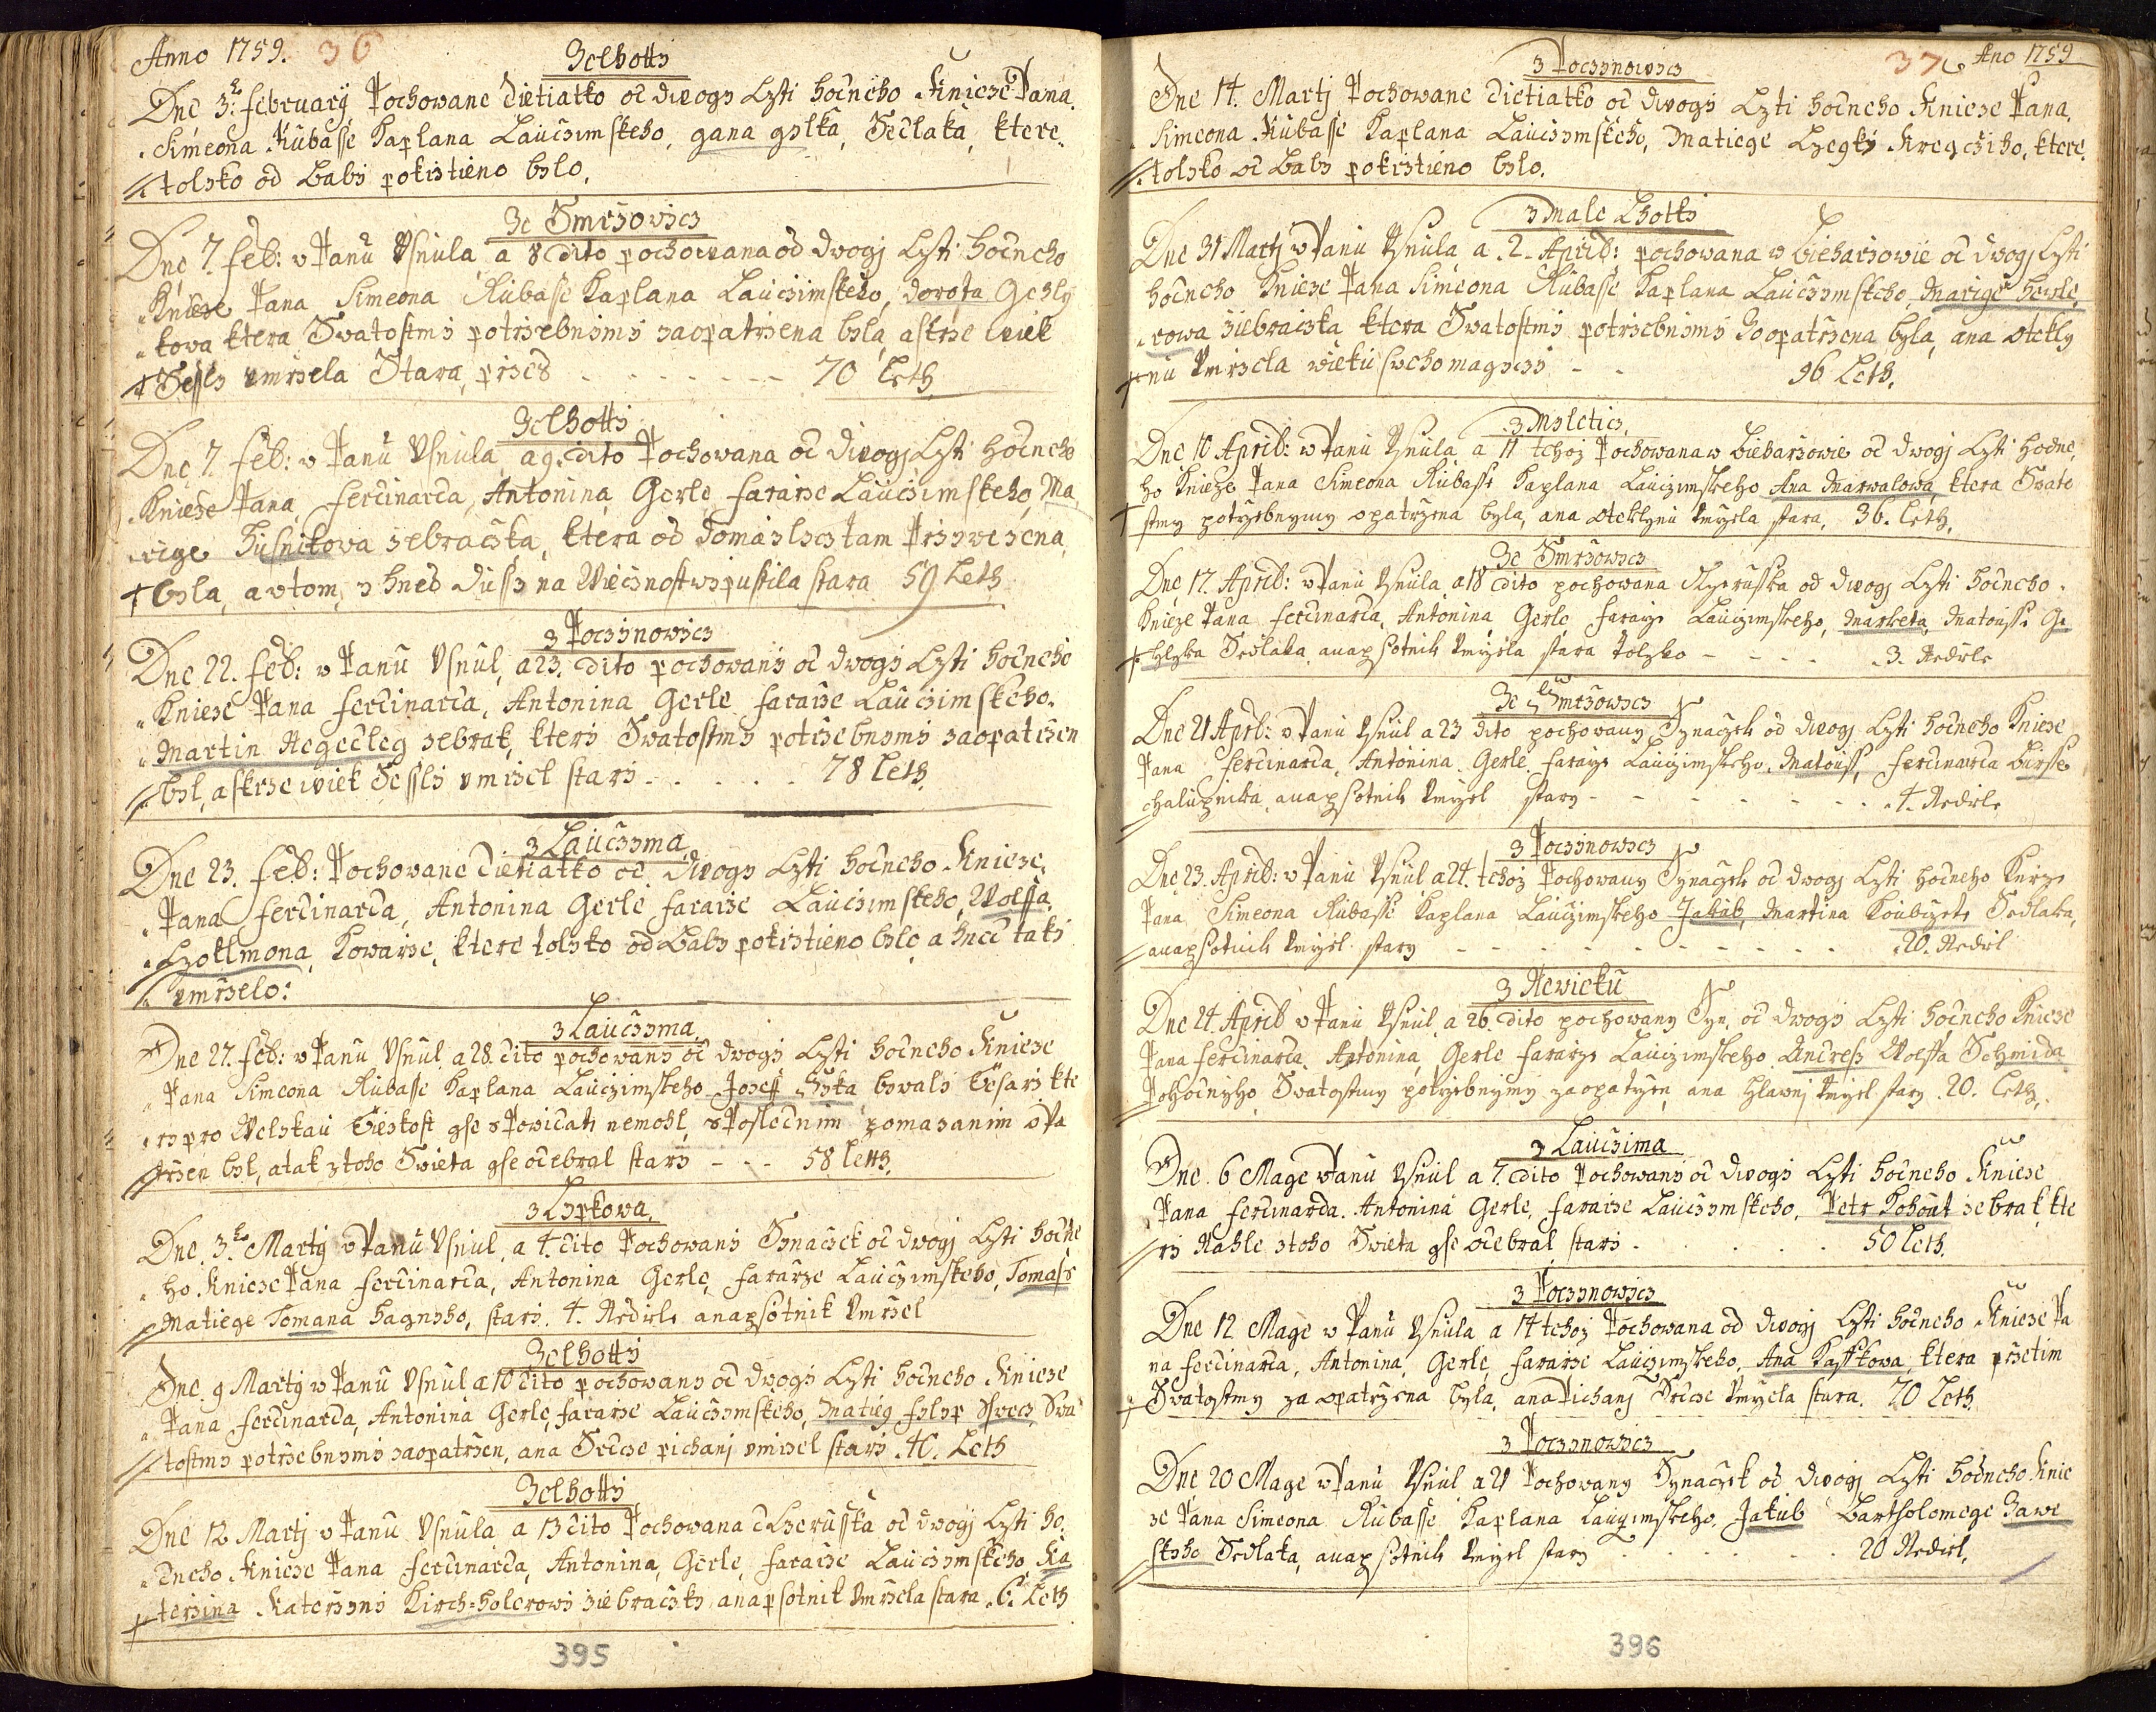 Anno 1759. 36
Ze lhotty
Dne 3ho february Pochowane dietiatko od dwogy Czti hodneho Knieze Pana
Simeona Kubasse Kaplana Lauczimskeho, gana gylka, Sedlaka, ktere
tolyko od Baby pokrztieno bylo,
Ze Smrzowicz
Dne 7. feb: w Panu Vsnula a 8 dito pochowana od dwogj Czti hodneho
Knieze Pana Simeona Kubasse Kaplana Lauczimskeho, dorota Gehly
kowa ktera Swatostmi potrzebnymi zaopatrzena byla, a skrze wiek
Sessly umrzela Stara, przes - - - - - 70 leth.
Ze lhotty
Dne 7. feb: w Panu Vsnula, a 9. dito Pochowana od dwogj Czti hodneho
Knieze Pana, ferdinarda, Antonina, Gerle, fararze Lauczimskeho, Ma
rige Husnikowa zebraczka, ktera od Domazlycz tam Przywezena
byla, a w tom, y hned dussy na Wiecznost wypustila stara 59 Leth
z Poczynowicz
Dne 22. feb: w Panu Vsnul, a 23. dito pochowany od dwogy Czti hodneho
Knieze Pana ferdinarda, Antonina Gerle fararze Lauczimskeho.
Martin Negedleg zebrak, ktery Swatostmi potrzebnymi zaopatrzen
byl, a skrze wiek Sessly umrzel stary - - - - 78 leth.
z Lauczyma
Dne 23. feb: Pochowane dietiatko od dwogy Czti hodneho Knieze
Pana ferdinarda, Antonina Gerle fararze Lauczimskeho, Wolffa
Czottmona, Kowarze, ktere tolyko od Baby pokrztieno bylo, a hned taky
umrzelo:
z Lauczyma
Dne 27. feb: w Panu Vsnul, a 28. dito pochowany od dwogy Czti hodneho Knieze
Pana Simeona Kubasse Kaplana Lauczimskeho Joseff bywaly kte
ry pro Welykau tieskost gse Powidati nemohl, s Poslednim pomazanim opa
trzen byl, a tak z toho Swieta gse odebral stary - - - 58 letth.
z Lypkowa.
Dne 3ho Marty w Panu Vsnul, a 4. dito Pochowany Synaczek od dwogj Czti hodne
ho Knieze Pana ferdinarda, Antonina Gerle, fararze Lauczimskeho, Tomass
Matiege Tomana hagnyho, stary. 4. Nedele a na psotnik Vmrzel
Ze lhotty
Dne 9 Marty w Panu Vsnul a 10 dito pochowany od dwogy Czti hodneho Knieze
Pana ferdinarda, Antonina Gerle, fararze Lauczymskeho, Matieg fylyp Swecz, Swa
tostmy potrzebnymi zaopatrzen, a na Srdcze pichanj umrzel stary. 40. Leth
Ze lhotty
Dne 12 Martj w Panu Vsnula a 13 dito Pochowana dczeruska od dwogj Czti ho
dneho Knieze Pana ferdinarda, Antonina, Gerle, fararze Lauczymskeho, Ka
terzina Katerzyny Kirch=holerowy ziebraczky a na psotnik Vmrzela stara. 6. Leth
395
37 Ano 1759
z Poczynowicz
Dne 14. Martj Pochowane dietiatko od dwogy Czti hodneho Knieze Pana,
Simeona Kubasse Kaplana Lauczymskeho, Matiege Kregcziho, ktere
tolyko od Baby pokrztieno bylo.
z Male Lhotky
Dne 31 Martj w Panu Vsnula a 2. Aprill: pochowana w Biharzowie od dwogj Czti
hodneho Knieze Pana Simeona Kubasse Kaplana Lauczymskeho, Marige
rowa ziebraczka ktera Swatostmi potrzebnymi Zoopatrzena byla, a na otekly
nu Vmrzela wieku sweho magyczy - - 96 leth.
z Myleticz,
Dne 10 Aprill: w Panu Vsnula, a 11 tehoz Pochowana w Biharzowie od dwogj Czti hodne
ho Knieze Pana Simeona Kubasse Kaplana Lauczimskeho Ana Marwalowa, ktera Swato
stmy potrzebnymy opatrzena byla, a na oteklynu Vmrzela stara, 36. leth.
Ze Smrzowicz
Dne 17. Aprill: w Panu Vsnula, a 18 dito pochowana dczeruska od dwogj Czti hodneho
Knieze Pana ferdinarda, Antonina Gerle fararze Lauczimskeho, Marketa, Matausse Ge
hlyka Sedlaka, a na psotnik Vmrzela stara tolyko - - - - 3. Nedele
Ze Smrzowicz
Dne 21 Aprill: w Panu Vsnul a 23 dito pochowany Synaczek od dwogj Czti hodneho Knieze
Pana ferdinarda, Antonina Gerle fararze Lauczimskeho, Matouss, ferdinarda Birsse
chalupnika, a na psotnik Vmrzel stary - - - - - - 4. Nedele
z Poczynowicz
Dne 23. Aprill: w Panu Vsnul a 24. tehoz Pochowany Synaczek od dwogj Czti hodneho Knieze
Pana Simeona Kubasse Kaplana Lauczimskeho Jakub, Martina Sedlaka,
a na psotnik Vmrzel stary - - - - - - - 20. Nedel
z Newietu
Dne 24. Aprill w Panu Vsnul, a 26. dito pochowany Syn, od dwogy Czti hodneho Knieze
Pana ferdinarda, Antonina, Gerle fararze Lauczimskeho Andress Wolffa Schmida
Pohodnyho Swatostmy potrzebnymy zaopatrzen, a na hlawnj Vmrzel stary. 20. leth.
z Lauczima
Dne 6 Mage w Panu Vsnul a 7. dito Pochowany od dwogy Czti hodneho Knieze
Pana ferdinarda. Antonina Gerle, fararze Lauczymskeho, Petr Kohout zebrak, kte
ry Nahle z toho Swieta gse odebral stary - - - - - 50 leth.
z Poczynowicz
Dne 12 Mage w Panu Vsnula a 14 tehoz Pochowana od dwogj Czti hodneho Knieze Pa
na ferdinarda, Antonina, Gerle, fararze Lauczimskeho, Ana Kasskowa, ktera przetim
Swatostmy za opatrzena byla, a na Pichanj Srdcze Vmrzela stara. 70 leth.
z Poczynowicz
Dne 20 Mage w Panu Vsnul a 21 Pochowany Synaczek od dwogj Czti hodneho Knie
ze Pana Simeona Kubasse Kaplana Lauczimskeho, Jakub Bartholomege Zawe
skyho Sedlaka, a na psotnik Vmrzel stary - - - - - 20 Nedel.
396